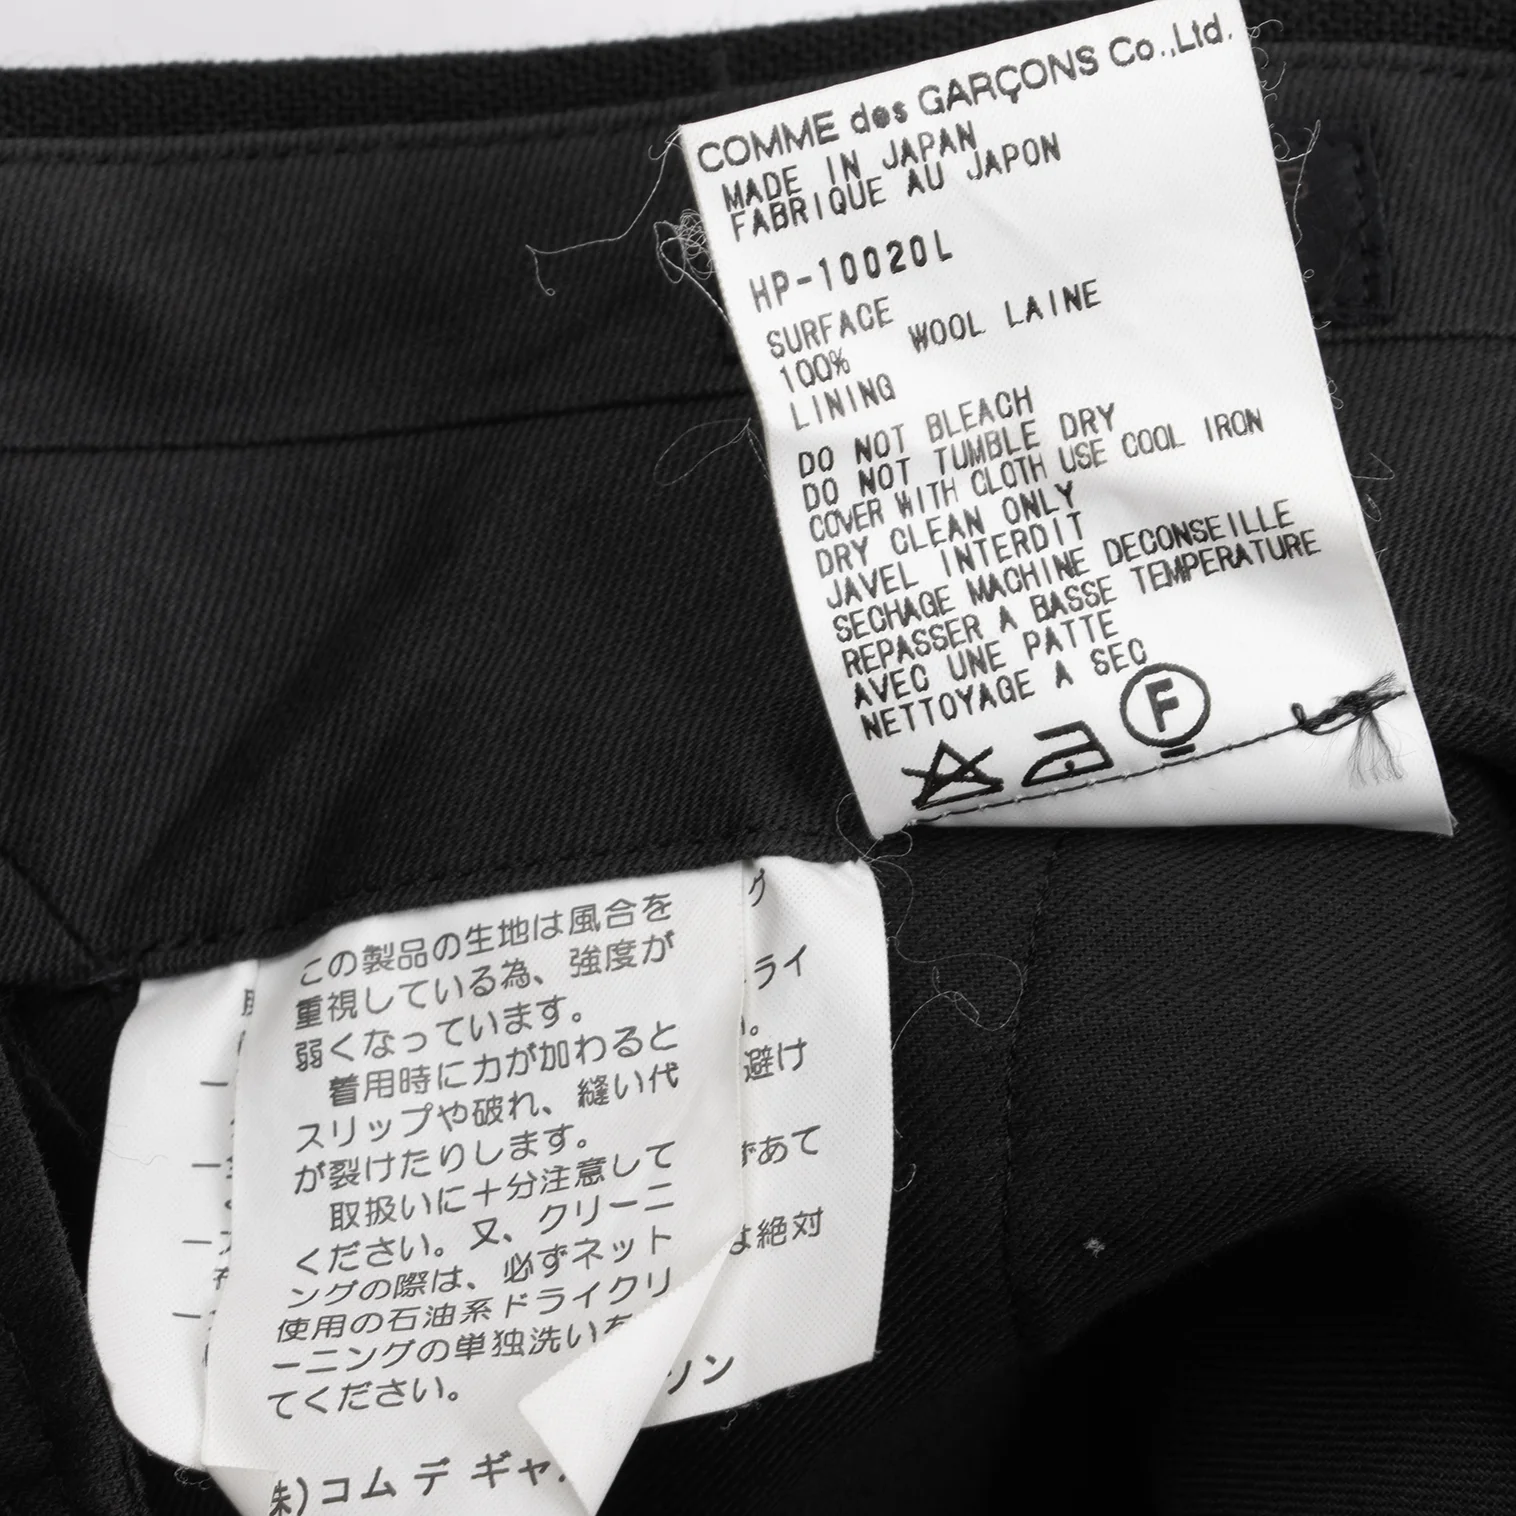 COMME des GARÇONS Co.,Ltd.
MADE IN JAPAN
FABRIQUE AU JAPON
HP-10020L
SURFACE
100% WOOL LAINE
LINING
DO NOT BLEACH
DO NOT TUMBLE DRY
COVER WITH CLOTH USE COOL IRON
DRY CLEAN ONLY
JAVEL INTERDIT
SECHAGE MACHINE DECONSEILLE
REPASSER A BASSE TEMPERATURE
AVEC UNE PATTE
NETTOYAGE A SEC
F
この製品の生地は風合を
重視している為、強度が
弱くなっています。
着用時に力が加わると
スリップや破れ、縫い代
が裂けたりします。
取扱いに十分注意して
ください。又、クリーニ
ングの際は、必ずネット
使用の石油系ドライクリ
ーニングの単独洗いを
てください。
株)コムデギャ
グ
ライ
。
避け
ずあて
は絶対
ソン